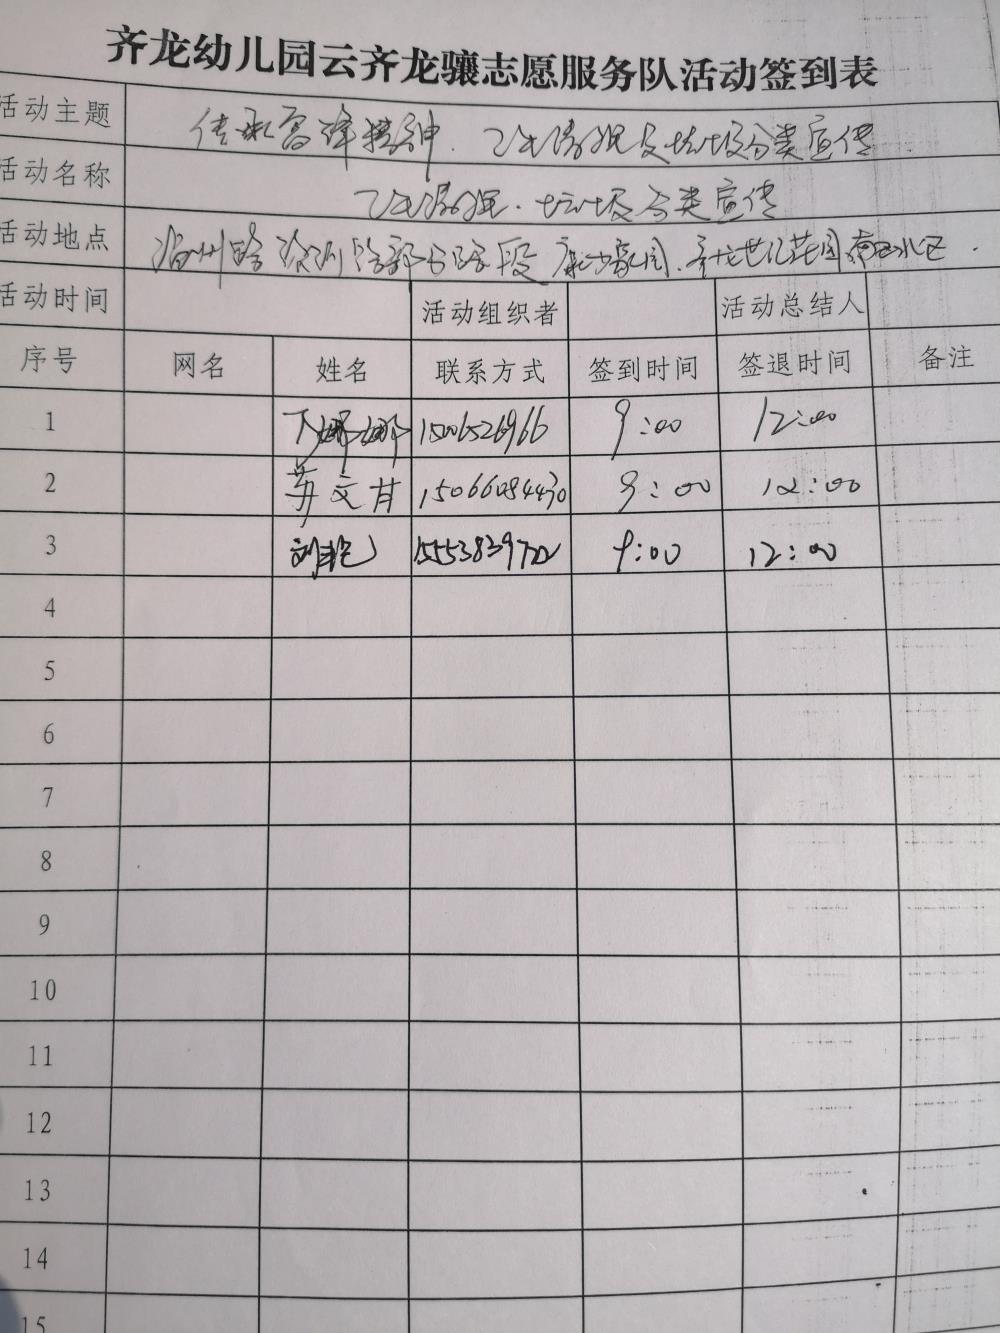 齐龙幼儿园云齐龙骧志愿服务队活动签到表
活动主题 传承雷锋精神. 及垃圾分类宣传
活动名称 垃圾分类宣传
活动地点
活动时间 活动组织者 活动总结人
序号 网名 姓名 联系方式 签到时间 签退时间 备注
1 娜娜 15006526966 9:00 12:00
2 苏文甘 15066084430 9:00 12:00
3 刘艳 15553839722 9:00 12:00
4
5
6
7
8
9
10
11
12
13
14
15